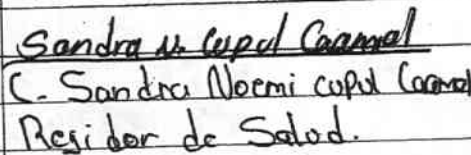 Sandra N. Cupul Caamal
C. Sandra Noemi cupul Caamal
Regidor de Salud.